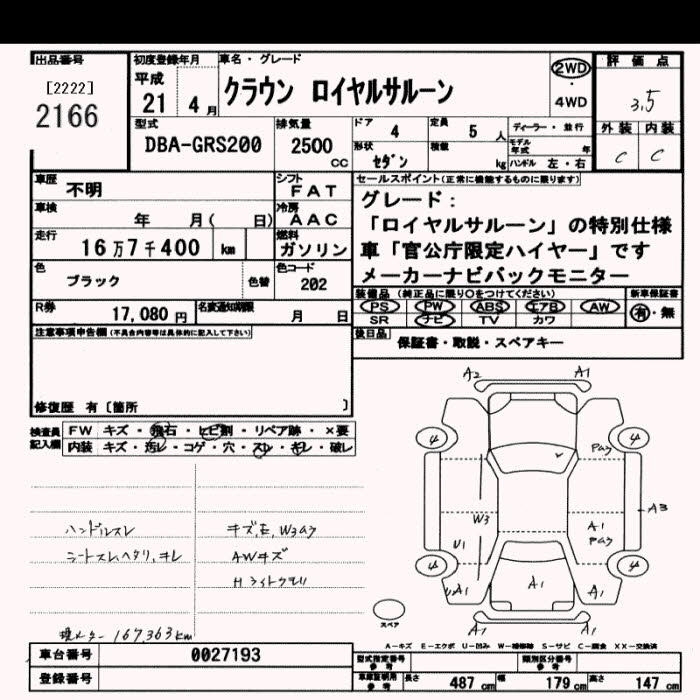 出品番号
[2222]
2166
初度登録年月
平成
21 4 月
車名・グレード
クラウン ロイヤルサルーン
2WD
・
4WD
評価点
3.5
外装 内装
C C
型式
DBA-GRS200
排気量
2500
CC
ドア 4
定員 5 人
ディーラー・並行
形状
セダン
積載
kg
モデル年式 年
ハンドル 左・右
車歴 不明
シフト
FAT
セールスポイント(正常に機能するものに限ります)
車検 年 月( 日)
冷房
AAC
グレード:
「ロイヤルサルーン」の特別仕様
車「官公庁限定ハイヤー」です
メーカーナビバックモニター
走行 16万7千400 km
燃料
ガソリン
色
ブラック
色替
色コード
202
装備品(純正品に限り○をつけてください)
新車保証書
PS PW ABS エアB AW
SR ナビ TV カワ
有・無
R券
17,080 円
名変通知期限
月 日
後日品
保証書・取説・スペアキー
注意事項申告欄(不具合内容等は具体的に記入して下さい)
修復歴 有〔箇所 〕
検査員記入欄
FW キズ・飛石・ヒビ割・リペア跡・×要
内装 キズ・汚レ・コゲ・穴・スレ・キレ・破レ
ハンドルスレ
シートスレ、ヘタリ、キレ
キズ,E,W3あり
AWキズ
Hライトクモリ
現メーター 167,363km
A2 A1
4 4
Pあり
W3
A3
A1
Pあり
U1
4 4
A1
A1
A1 A1
スペア
A-キズ E-エクボ U-凹み W-補修跡 S-サビ C-腐食 XX-交換済
車台番号 0027193
登録番号
型式指定番号 参考
類別区分番号 参考
車庫証明用 参考
長さ 487 cm 幅 179 cm 高さ 147 cm